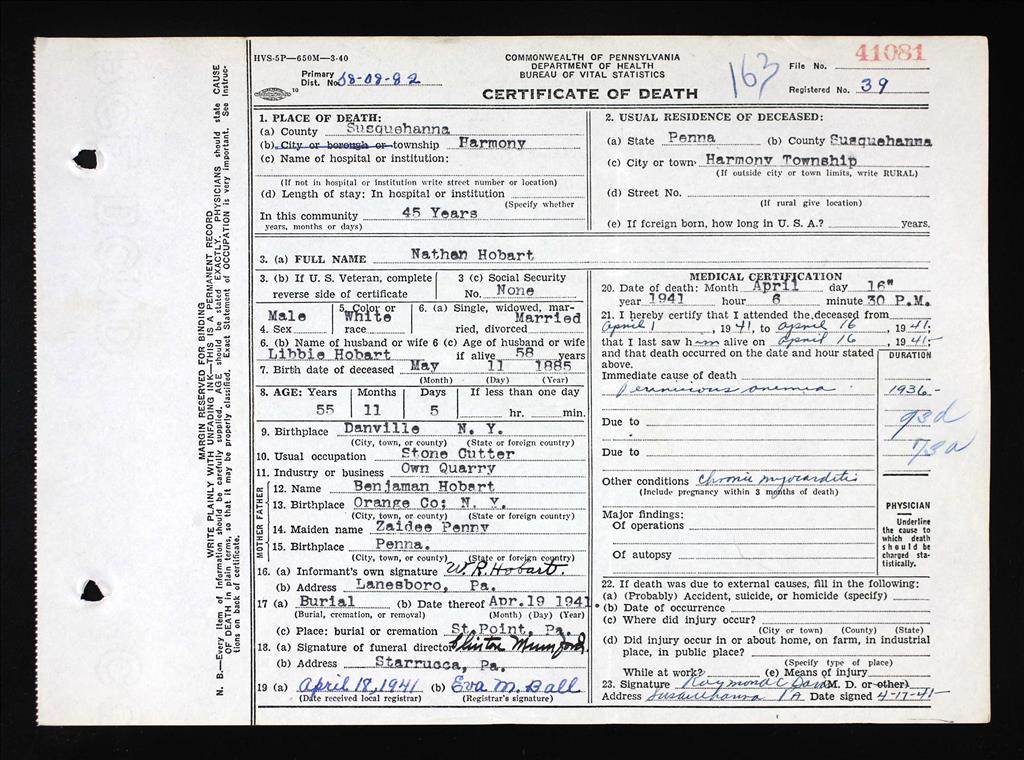 HVS-5P—650M—3-40
Primary Dist. No. 58-08-82
COMMONWEALTH OF PENNSYLVANIA
DEPARTMENT OF HEALTH
BUREAU OF VITAL STATISTICS
CERTIFICATE OF DEATH
163
41081
File No.
Registered No. 39
MARGIN RESERVED FOR BINDING
WRITE PLAINLY WITH UNFADING INK—THIS IS A PERMANENT RECORD
N. B.—Every item of information should be carefully supplied. AGE should be stated EXACTLY. PHYSICIANS should state CAUSE
OF DEATH in plain terms, so that it may be properly classified. Exact Statement of OCCUPATION is very important. See Instruc-
tions on back of certificate.
1. PLACE OF DEATH:
(a) County Susquehanna
(b) City or borough or township Harmony
(c) Name of hospital or institution:
(If not in hospital or institution write street number or location)
(d) Length of stay: In hospital or institution
(Specify whether
In this community 45 Years
years, months or days)
2. USUAL RESIDENCE OF DECEASED:
(a) State Penna (b) County Susquehanna
(c) City or town Harmony Township
(If outside city or town limits, write RURAL)
(d) Street No.
(If rural give location)
(e) If foreign born, how long in U. S. A.? years.
3. (a) FULL NAME Nathan Hobart
3. (b) If U. S. Veteran, complete
reverse side of certificate
3 (c) Social Security
No. None
4. Sex Male
5. Color or race White
6. (a) Single, widowed, mar-
ried, divorced Married
6. (b) Name of husband or wife
Libbie Hobart
6 (c) Age of husband or wife
if alive 58 years
7. Birth date of deceased May 11 1885
(Month) (Day) (Year)
8. AGE: Years Months Days If less than one day
55 11 5 hr. min.
9. Birthplace Danville N. Y.
(City, town, or county) (State or foreign country)
10. Usual occupation Stone Cutter
11. Industry or business Own Quarry
FATHER
12. Name Benjaman Hobart
13. Birthplace Orange Co; N. Y.
(City, town, or county) (State or foreign country)
MOTHER
14. Maiden name Zaidee Penny
15. Birthplace Penna.
(City, town, or county) (State or foreign country)
16. (a) Informant's own signature W. R. Hobart.
(b) Address Lanesboro, Pa.
17 (a) Burial (b) Date thereof Apr. 19 1941.
(Burial, cremation, or removal) (Month) (Day) (Year)
(c) Place: burial or cremation St. Point, Pa.
18. (a) Signature of funeral director Clinton Mumford.
(b) Address Starrucca, Pa.
19 (a) April 18, 1941 (b) Eva M. Ball
(Date received local registrar) (Registrar's signature)
MEDICAL CERTIFICATION
20. Date of death: Month April day 16"
year 1941 hour 6 minute 30 P.M.
21. I hereby certify that I attended the deceased from
April 1, 1941, to April 16, 1941.
that I last saw him alive on April 16, 1941.
and that death occurred on the date and hour stated
above.
DURATION
Immediate cause of death
Pernicious anemia 1936-
Due to
93d
Due to
73a
Other conditions Chronic myocarditis
(Include pregnancy within 3 months of death)
Major findings:
Of operations
Of autopsy
PHYSICIAN
Underline
the cause to
which death
should be
charged sta-
tistically.
22. If death was due to external causes, fill in the following:
(a) (Probably) Accident, suicide, or homicide (specify)
(b) Date of occurrence
(c) Where did injury occur?
(City or town) (County) (State)
(d) Did injury occur in or about home, on farm, in industrial
place, in public place?
(Specify type of place)
While at work? (e) Means of injury
23. Signature Raymond C Davis (M. D. or other)
Address Susquehanna Pa Date signed 4-17-41-